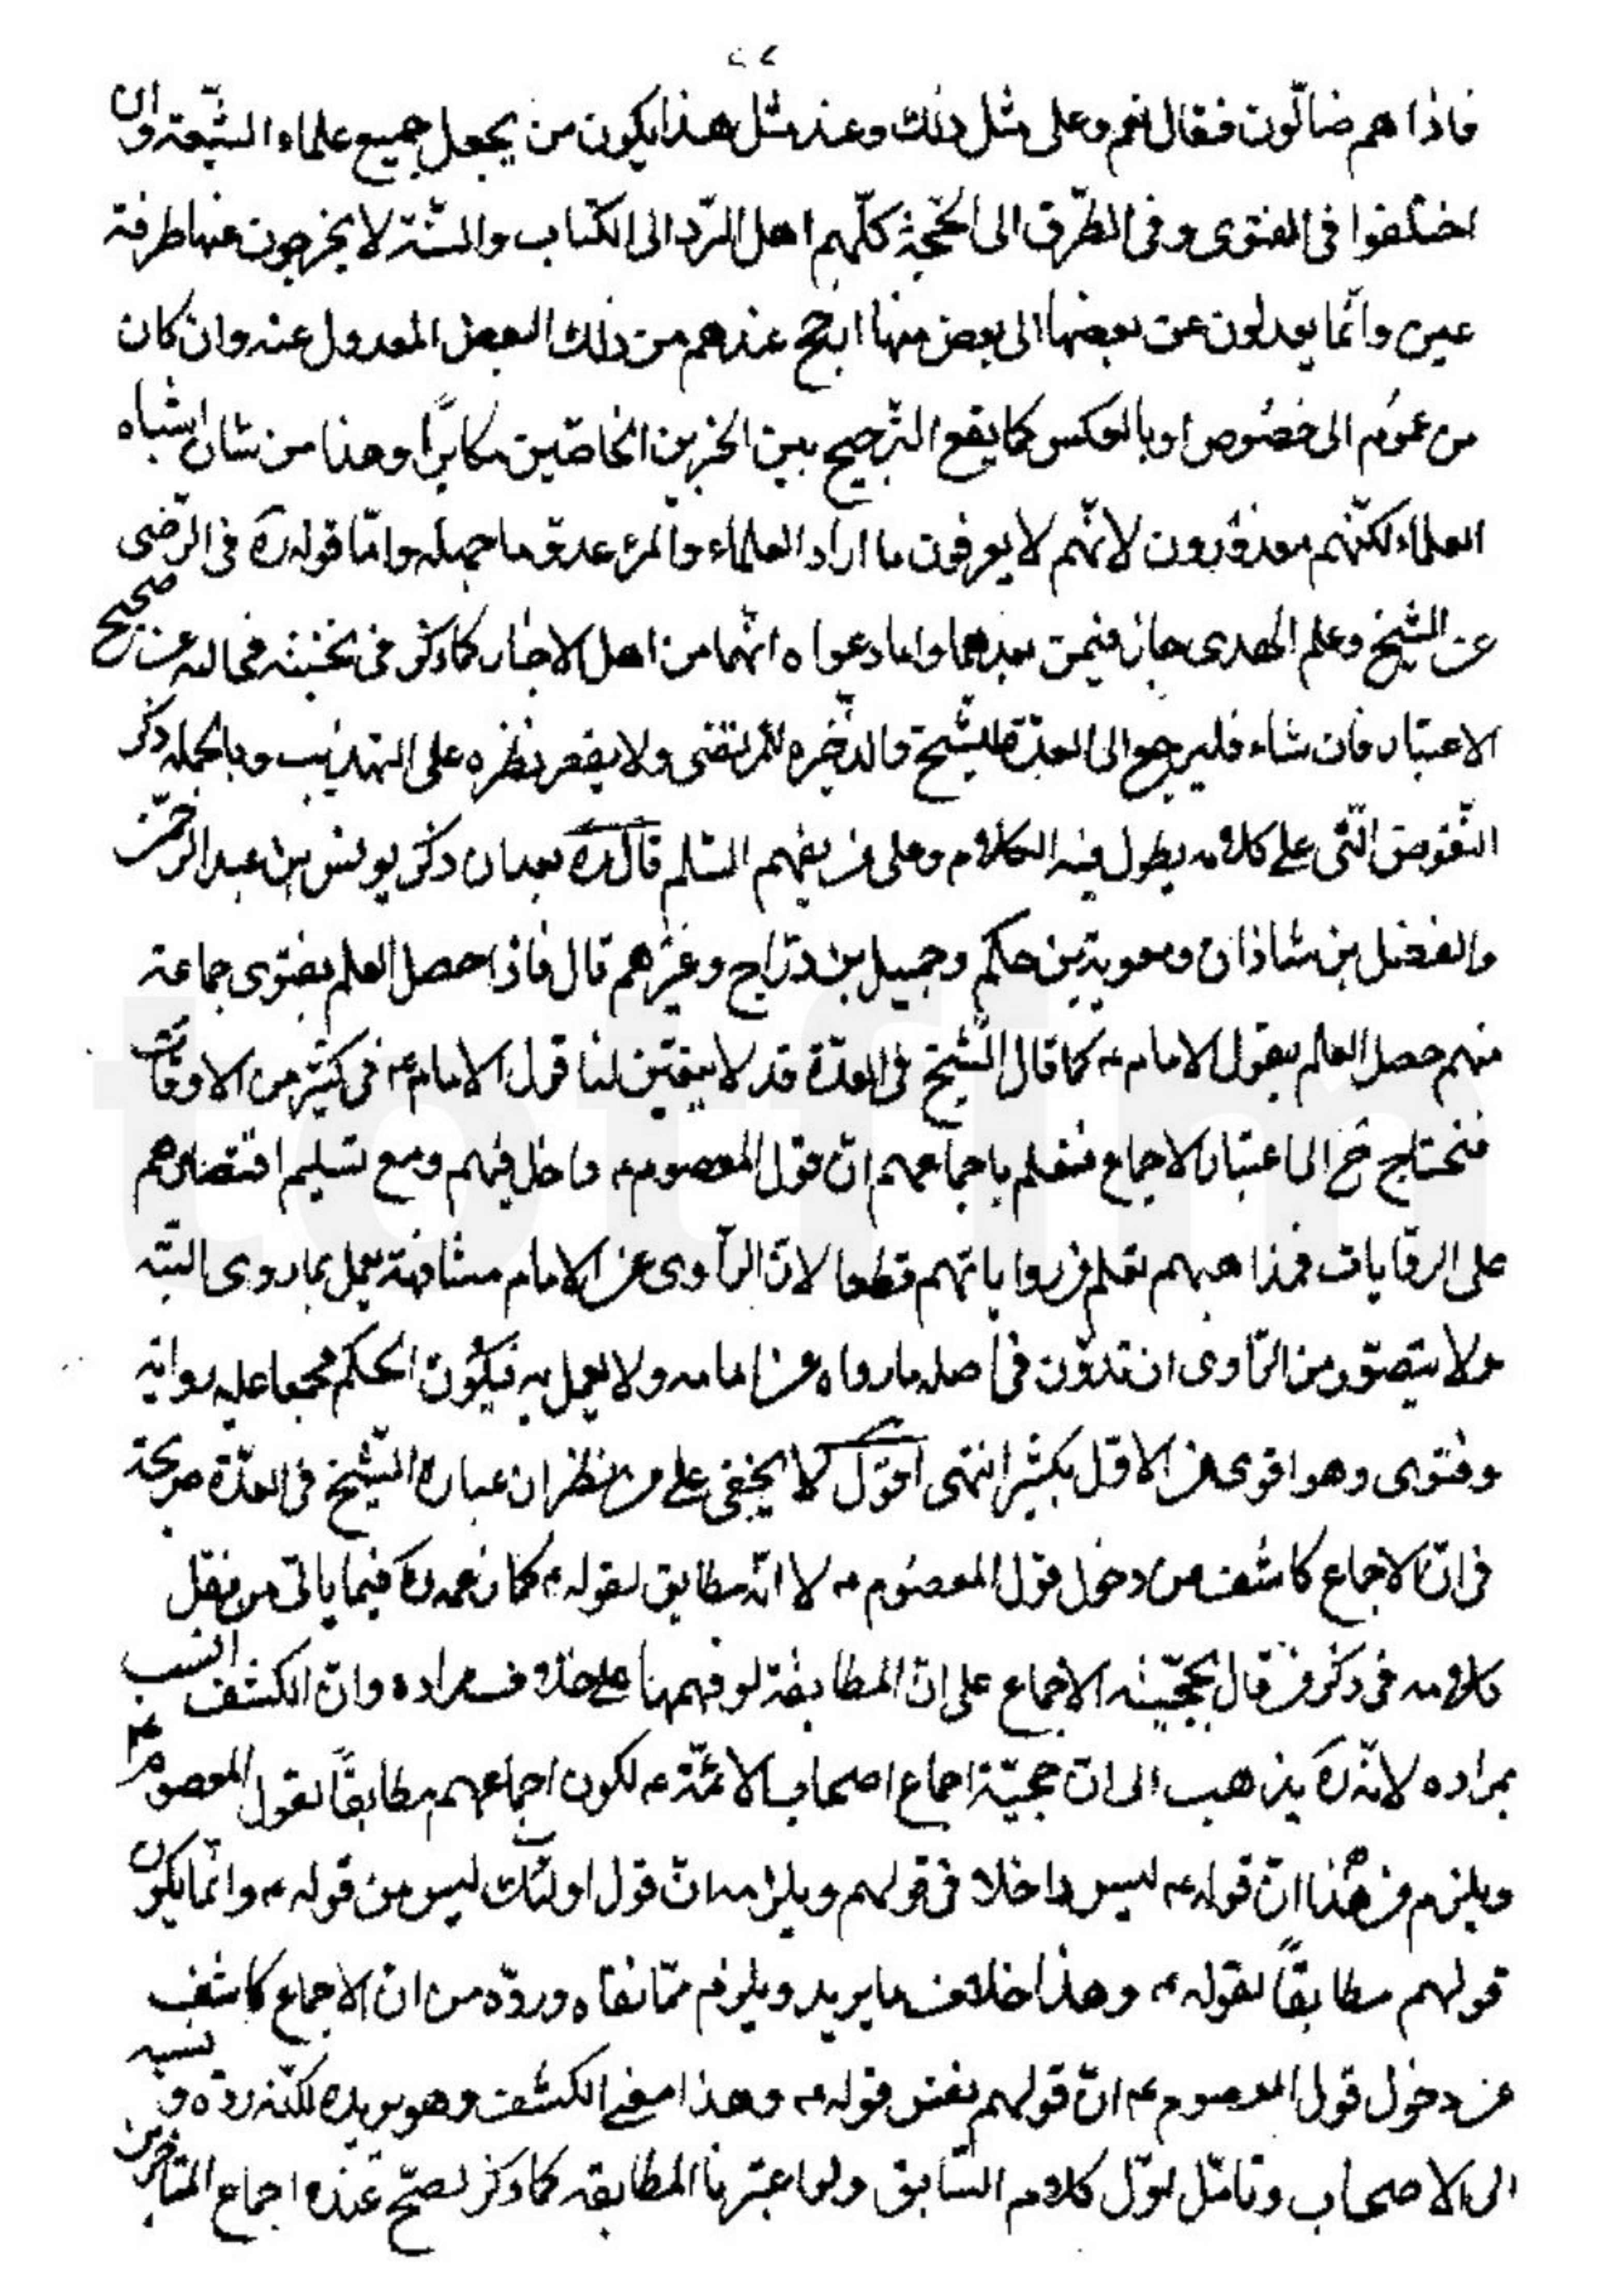 فاذا هم ضالّون فقال نعم وعلى مثل ذلك وعند مثل هذا يكون من يجعل جميع علماء الشيّعة وان
اختلفوا فى الفتوى وفى الطّرق الى الحّجة كلّهم اهل الرّد الى الكتاب والسّنّة لا يخرجون عنها طرفة
عين وانّما يعدلون عن بعضها الى بعض منها ارجح عندهم من ذلك البعض المعدول عنه وان كان
من عموُم الى خصُوص او بالعكس كما يقع التّرجيح بين الخبرين الخاصّين مكابرًا وهذا من شان اشباه
العلماء لكنّهم معذوُرون لانّهم لا يعرفون ما اراد العلماء والمرء عدوّ ما جهله وامّا قوله ره فى الرّضى
عن الشّيخ وعلم الهدى جاز فيمن بعدهما واما دعواه انّهما من اهل الاخبار كما ذكر فى فخاله عن صحيح
الاعتبار فان شاء فليرجع الى العدّة للشّيخ والذّخيره للمرتضى ولا يقصر نظره على التهذيب وبالجمله ذكر
النّقوض الّتى على كلامه يطول فيه الكلام وعلى من يفهم السّلم قال ره بعد ان ذكر يونس بن عبد الرّحمن
والفضل بن شاذان ومعوية بن حكم وجميل بن درّاج وغيرهم قال فاذا حصل العلم بفتوى جماعة
منهم حصل العلم بقول الامام ع كما قال الشّيخ فى العدّة قد لا يتعيّن لنا قول الامام ع فى كثير من الاوقات
فنحتاج ح الى اعتبار الاجماع فنعلم باجماعهم انّ قول المعصوم ع داخل فيهم ومع تسليم اقتصارهم
على الرّوايات فمذاهبهم تعلم من رواياتهم قطعا لانّ الرّاوى عن الامام مشافهة يعمل بما روى البتّه
ولا يتصوّر من الرّاوى ان تدوّن فى اصله ما رواه عن امامه ولا يعمل به فيكوُن الحكم مجمعا عليه رواية
وفتوى وهو اقوى من الاوّل بكثير انتهى اقول لا يخفى على من نظر ان عبارة الشّيخ فى العدّة صريحة
فى انّ الاجماع كاشف عن دخول قول المعصوُم ع لا انّه مطابق لقوله ع كما زعمه ره فيما ياتى من نقل
كلامه فى ذكر من قال بحجّيّة الاجماع على انّ المطابقة لو فهمها على خلاف مراده وانّ الكشف انسب
بمراده لانّه ره يذهب الى انّ حجيّة اجماع اصحاب الائمّة ع لكون اجماعهم مطابقًا لقول المعصوم ع
ويلزم من هذا انّ قوله ع ليس داخلا فى قولهم ويلزمه انّ قول اولئك ليس من قوله ع وانّما يكون
قولهم مطابقًا لقوله ع وهذا خلاف ما يريد ويلزم ممّا نفاه وردّه من انّ الاجماع كاشف
عن دخول قول المعصوم ع انّ قولهم نفس قوله ع وهذا معنى الكشف وهو يريده لكنّه ردّه و نسبه
الى الاصحاب وتامّل اوّل كلامه السّابق ولو اعتبرنا المطابقه كما ذكر لصحّ عنده اجماع المتاخرين